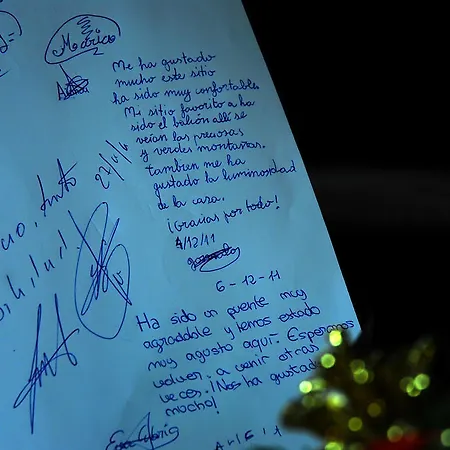 Me ha gustado
mucho este sitio
ha sido muy confortable.
Mi sitio favorito a ha
sido el balcón allí se
veían las preciosas
y verdes montañas.
tambien me ha
gustado la luminosidad
de la casa.
¡Gracias por todo!
4/12/11
6-12-11
Ha sido un puente muy
agradable y hemos estado
muy agusto aquí. Esperamos
volver a venir otras
veces. ¡Nos ha gustado
mucho!